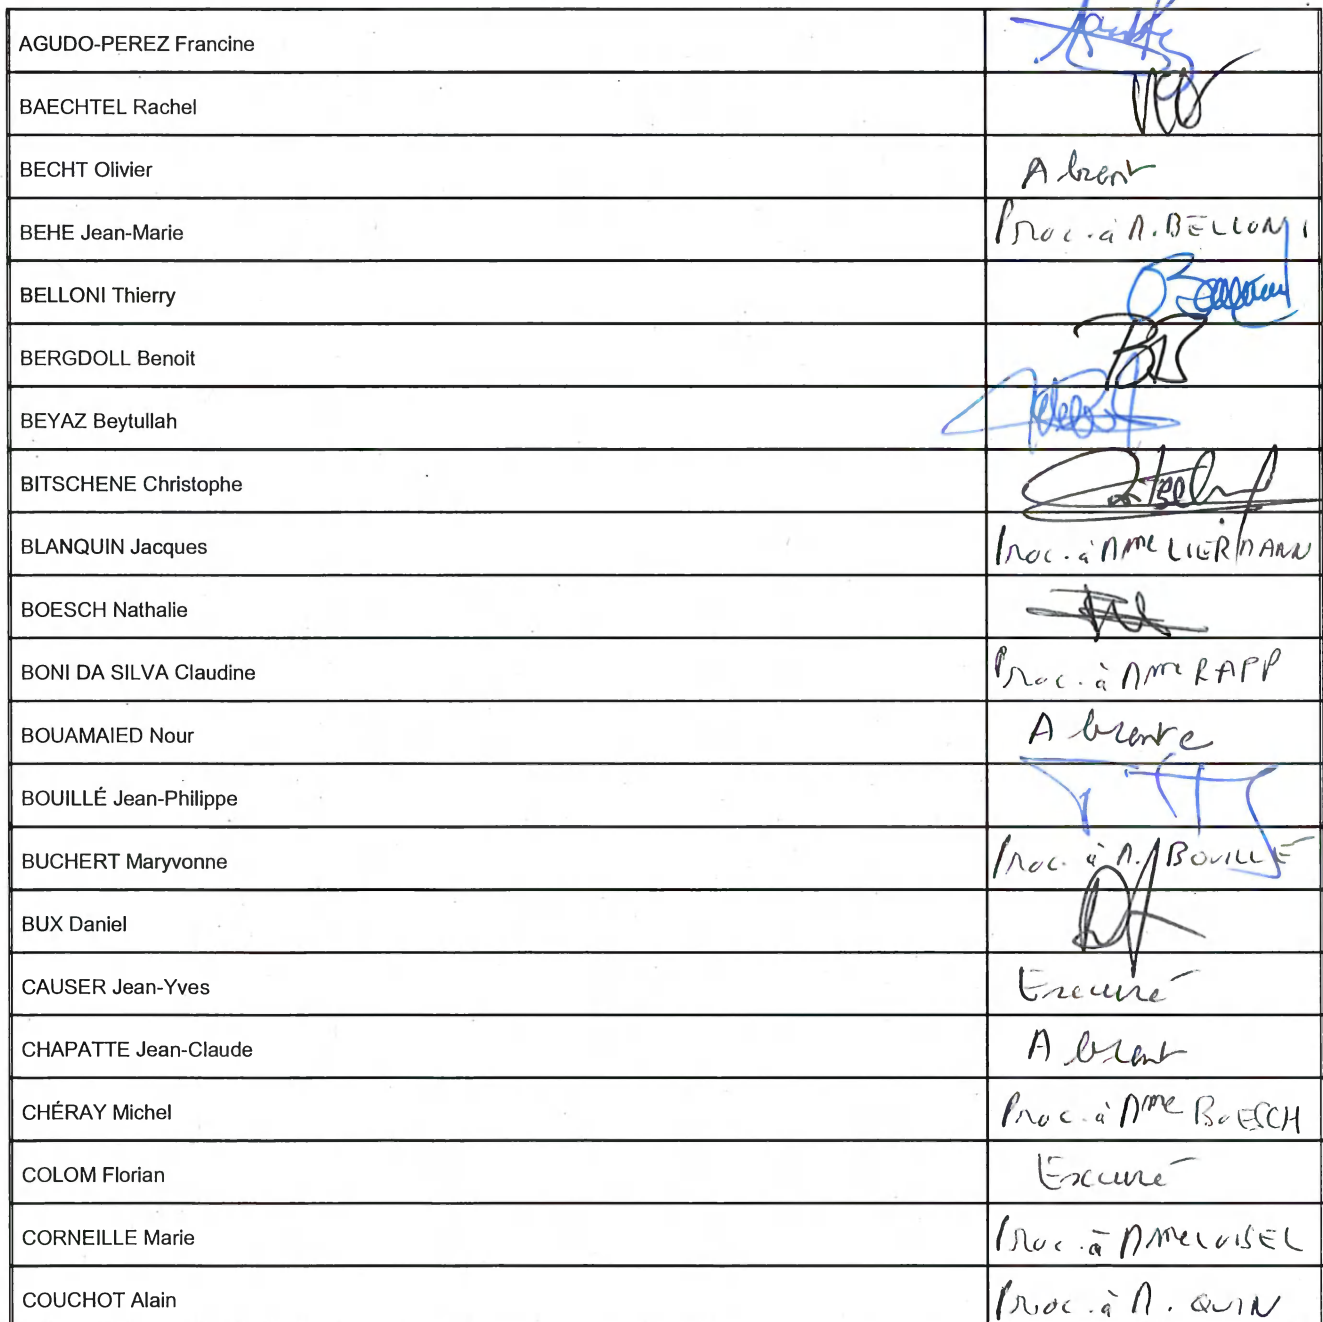 AGUDO-PEREZ Francine
BAECHTEL Rachel
BECHT Olivier Absent
BEHE Jean-Marie Proc. à M. BELLONI
BELLONI Thierry
BERGDOLL Benoit
BEYAZ Beytullah
BITSCHENE Christophe
BLANQUIN Jacques Proc. à Mme LIERMANN
BOESCH Nathalie
BONI DA SILVA Claudine Proc. à Mme RAPP
BOUAMAIED Nour Absente
BOUILLÉ Jean-Philippe
BUCHERT Maryvonne Proc. à M. BOUILLÉ
BUX Daniel
CAUSER Jean-Yves Excusé
CHAPATTE Jean-Claude Absent
CHÉRAY Michel Proc. à Mme BOESCH
COLOM Florian Excusé
CORNEILLE Marie Proc. à Mme LOISEL
COUCHOT Alain Proc. à M. QUIN